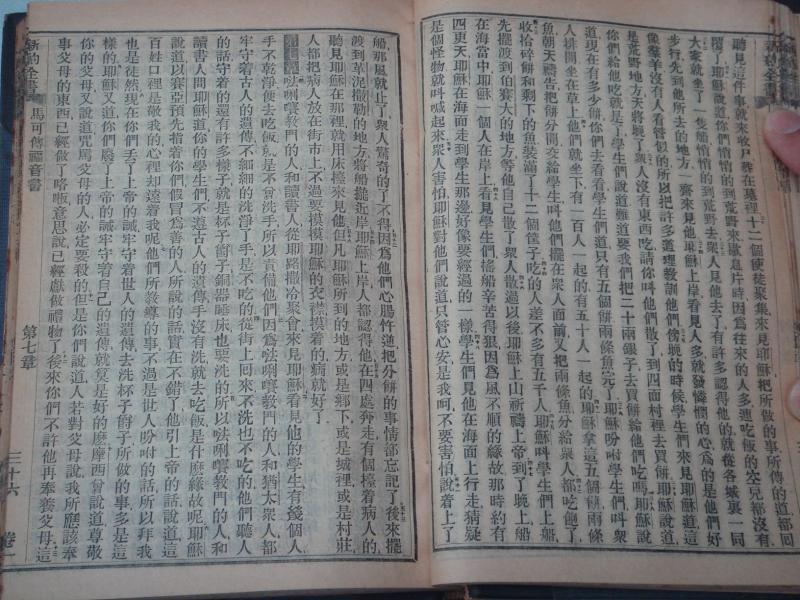 聽見這件事就來收尸葬在墓裡十二個使徒聚集來見耶穌把所做的事所傳的道都回
覆了耶穌說道你們到荒野來歇息片時因爲往來的人多連吃飯的空兒都沒有
大家就坐了一隻船悄悄的到荒野去衆人見他去了有許多認得他的就從各城裏一同
步行先到他所去的地方一齊來見他耶穌上岸看見人多就發憐憫的心爲的是他們好
像羣羊沒有人看管似的所以把許多道理教訓他們傍晚的時候學生們來見耶穌說道這
是荒野地方天將晚了衆人沒有東西吃請你叫他們散了到四面村裡去買餅耶穌說
你們給他吃就是了學生們說道難道要我們把二十兩銀子去買餅給他們吃嗎耶穌說
道現在有多少餅你們去看看學生們道只有五個餅兩條魚完了耶穌吩咐學生們叫衆
人排開坐在草上他們就坐下有一百人一起的有五十人一起的耶穌拿這五個餅兩條
魚朝天禱告把餅分開交給學生叫他們擺在衆人面前又把兩條魚分給衆人都吃飽了
收拾碎餅和剩下的魚裝滿了十二個筐子吃的人差不多有五千人耶穌叫學生們上船
先擺渡到伯賽大的地方等他自己散了衆人散過以後耶穌上山祈禱上帝到了晚上船
在海當中耶穌一個人在岸上看見學生們搖船辛苦得狠因爲風不順的緣故那時約有
四更天耶穌在海面走到學生那邊好像要經過的一樣學生們見他在海面上行走猜疑
是個怪物就叫喊起來衆人害怕耶穌對他們說道只管心安是我呵不要害怕說着上了
船那風就止了衆人驚奇的了不得因爲他們心腸忤逆把分餅的事情都忘記了後來擺
渡到革泥撒勒的地方將船攏近岸耶穌上岸人都認得他在四處奔走有個檯着病人的
聽見耶穌在那裡就用床檯來見他但凡耶穌所到的地方或是鄉下或是城裡或是村莊
人都把病人放在街市上不過要摸摸耶穌的衣襟摸着的病就好了
第七章 㕸唎㘔教門的人和讀書人從耶路撒冷聚會來見耶穌看見他的學生有幾個人
手不乾淨便去吃飯就是不曾洗手所以責備他們因爲㕸唎㘔教門的人和猶太衆人都
牢守着古人的遺傳不細細的洗淨了手是不吃的從街上回來不洗也不吃的他們聽人
的話守着的還有許多樣子就是杯子罇子銅器睡床也要洗的所以㕸唎㘔教門的人和
讀書人問耶穌道你的學生們不遵古人的遺傳手沒有洗就去吃飯是什麽緣故呢耶穌
說道以賽亞預先指着你們假冒爲善的人所說的話實在不錯了他引上帝的話說道這
百姓口裡是敬我的心裡却遠着我呢他們所教導的事不過是世人吩咐的話所以拜我
也是徒然現在你們丟了上帝的誡牢守着世人的遺傳去洗杯子罇子所做的事多是這
樣的耶穌又道你們廢了上帝的誡牢守着自己的遺傳就算是好的麽摩西曾說道尊敬
你的父母又說道咒罵父母的人必定要殺的但是你們說道人若對父母說我所應該奉
事父母的東西已經做了咯㗒意思說已經獻做禮物了後來你們不許他再奉養父母這
新約全書 馬可傳福音書 第七章 三十六 卷
新約全書